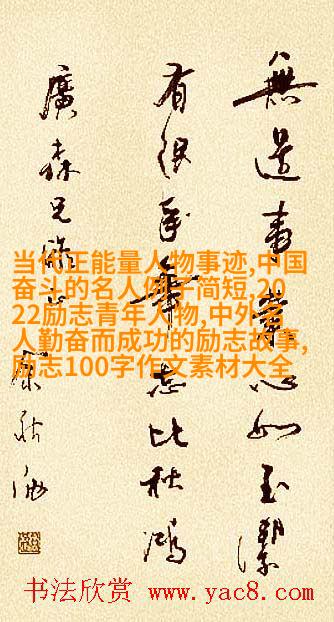 無 事 心如玉潔
有 志比秋鴻
廣森兄
当代正能量人物事迹,中国
奋斗的名人例子简短,20
22励志青年人物,中外名
人勤奋而成功的励志故事,
励志100字作文素材大全
书法欣赏 www.yac8.com